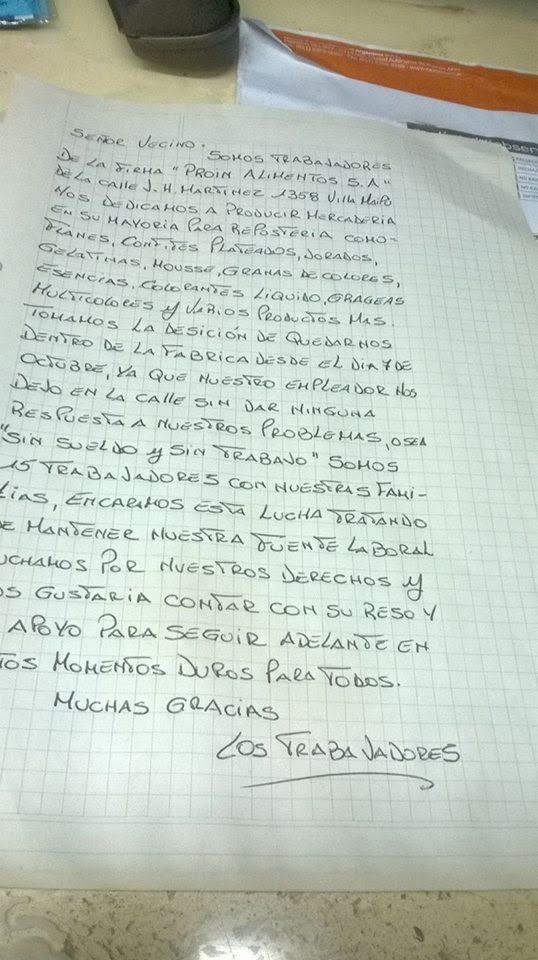 SEÑOR VECINO.
SOMOS TRABAJADORES
DE LA FIRMA "PROIN ALIMENTOS S.A"
DE LA CALLE J. H. MARTINEZ 1358 VILLA MAIPÚ
NOS DEDICAMOS A PRODUCIR MERCADERIA
EN SU MAYORIA PARA REPOSTERIA COMO-
FLANES, CONFITES PLATEADOS, DORADOS,
GELATINAS, MOUSSE, GRANAS DE COLORES,
ESENCIAS, COLORANTES LIQUIDO, GRAGEAS
MULTICOLORES Y VARIOS PRODUCTOS MAS.
TOMAMOS LA DESICIÓN DE QUEDARNOS
DENTRO DE LA FABRICA DESDE EL DIA 7 DE
OCTUBRE, YA QUE NUESTRO EMPLEADOR NOS
DEJO EN LA CALLE SIN DAR NINGUNA
RESPUESTA A NUESTROS PROBLEMAS, OSEA
"SIN SUELDO Y SIN TRABAJO" SOMOS
15 TRABAJADORES CON NUESTRAS FAMI-
LIAS, ENCARAMOS ESTA LUCHA TRATANDO
DE MANTENER NUESTRA FUENTE LABORAL
UCHAMOS POR NUESTROS DERECHOS Y
OS GUSTARIA CONTAR CON SU RESO Y
APOYO PARA SEGUIR ADELANTE EN
TOS MOMENTOS DUROS PARA TODOS.
MUCHAS GRACIAS
LOS TRABAJADORES